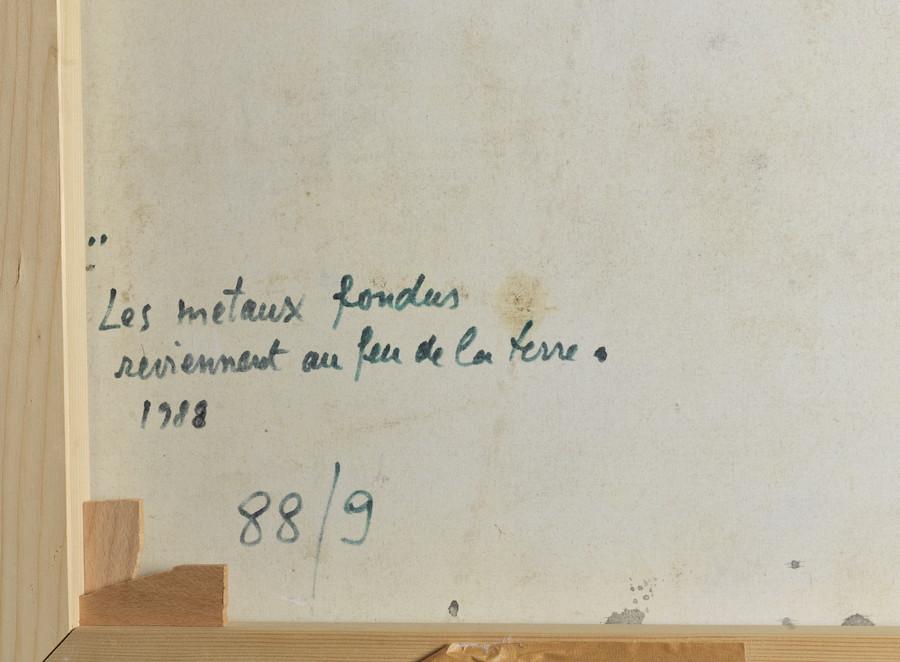 "
Les metaux fondus
reviennent au feu de la terre.
1988
88/9